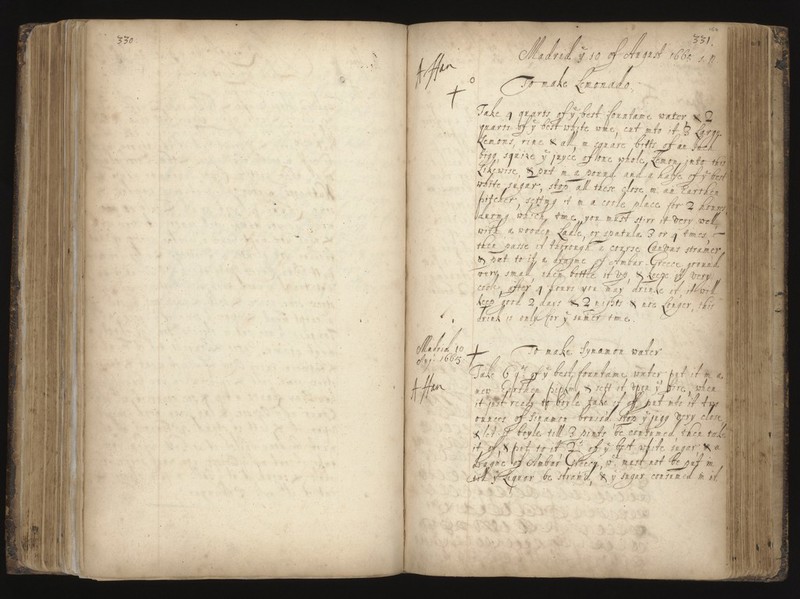 330
331
Madrid ye 10 of August 166
A Ffan
To make Lemonado.
Take 4 quarts of ye best fountaine water & 2
quarts of ye best white wine, cut into it 3 Large
Lemons, rine & all, in square bitts of an inch
bigg, squize ye juyce of one whole Lemon into this
Likewise, & put in a pound and a halfe of ye best
white sugar, stop all these close in an Earthen
pitcher, setting it in a coole place for 2 hours
during which time, you must stirr it very well
with a wooden Ladle, or spatula 3 or 4 times,
then passe it through a course Canvas strainer,
& put to it a dragme of Ambar Greece ground
very small, then bottle it up, & keepe it very
coole, after 4 hours you may drinke it, it will
keep good 2 days & 2 nights & noe Longer, this
drink is only for ye sumer time.
Madrid 10
Augt 1665
To make Synamon water
A Ffan
Take 6 qts of ye best fountaine water put it in a
new Earthen pipkin, & sett it upon ye fire, when
it just ready to boyle take it off, put into it two
ounces of Sinamon bruised, stop ye jugg very close
& let it boyle till 3 pints be consumed then take
it off, & put to it of ye best white sugar, & a
dragme of Ambar Greece, wch must not be put in
till ye Liquor be strained, & ye suger consumed in it